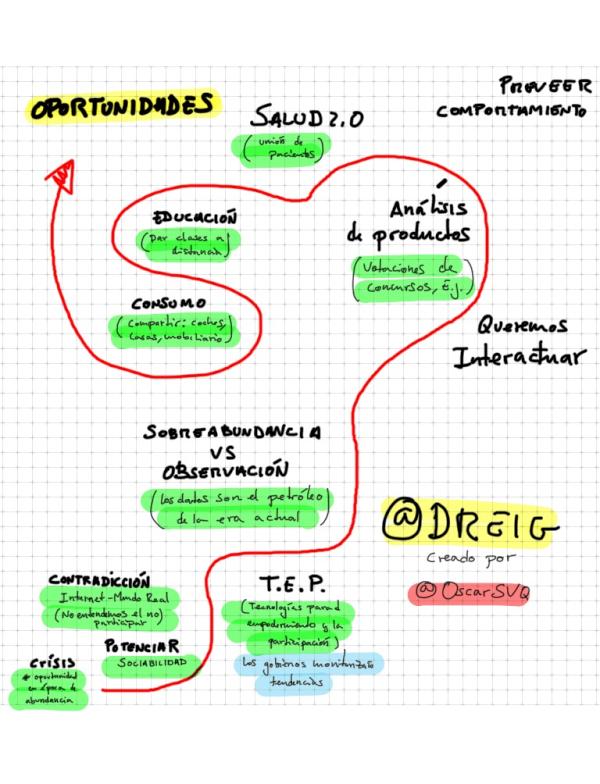 OPORTUNIDADES
PROVEER
COMPORTAMIENTO
SALUD 2.0
(unión de
pacientes)
EDUCACIÓN
(Dar clases a
distancia)
Análisis
de productos
(Votaciones de
concursos, E.j.)
CONSUMO
(Compartir: coches,
casas, mobiliario)
Queremos
Interactuar
SOBREABUNDANCIA
VS
OBSERVACIÓN
(Los datos son el petróleo
de la era actual)
@DREIG
Creado por
@OscarSVQ
CONTRADICCIÓN
Internet-Mundo Real
(No entendemos el no)
participar
T.E.P.
(Tecnologías para el
empoderamiento y la
participación)
Los gobiernos
tendencias
POTENCIAR
SOCIABILIDAD
CRÍSIS
oportunidad
en época de
abundancia